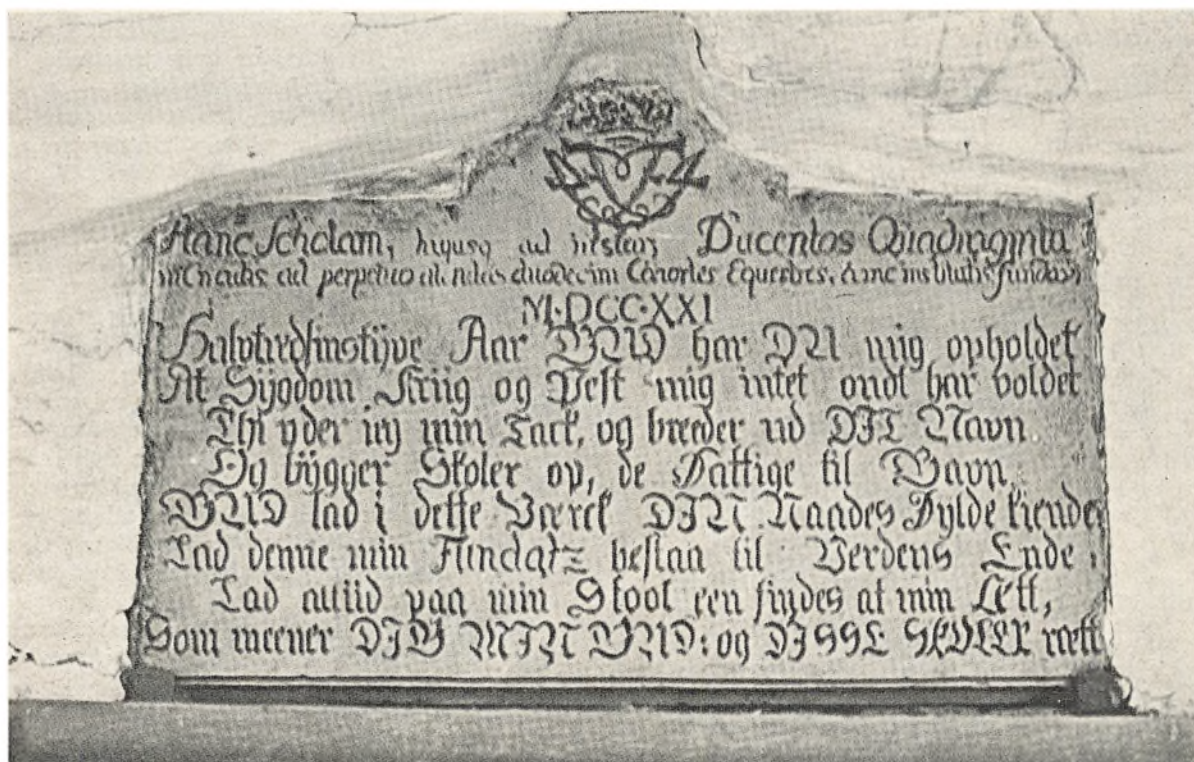 Hanc Scholam, hujusq ad instar, Ducentos Quadraginta
ad perpetuo alendas duodecim Cohortes Equestres, a me institutis fundavi,
M·DCC·XXI
Halvtredsinstyve Aar GUD har DU mig opholdet
At Sÿgdom Kriig og Pest mig intet ondt har voldet
Thi yder ieg min Tack, og breeder ud DIT Navn
Og bÿgger Skoler op, de Fattige til Gavn
GUD lad i dette Værck DIN Naades Fylde kiende,
Lad denne min Fundatz bestaa til Verdens Ende,
Lad altiid paa min Stool een findes af min Ætt,
Som meener DIG MIN GUD: og DISSE SKOLER rætt